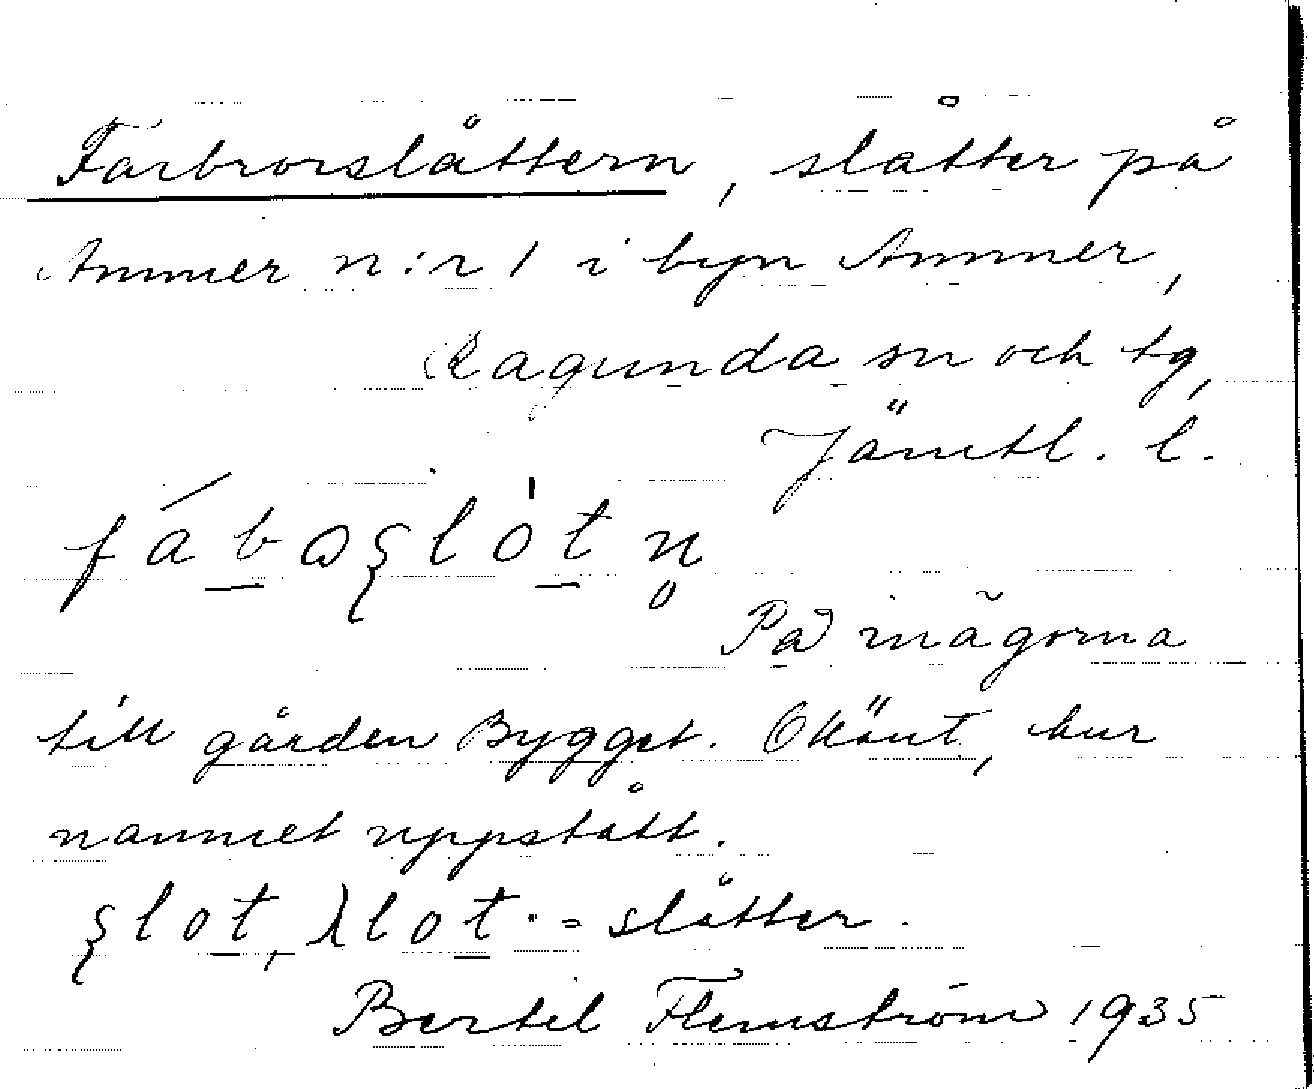 Farbrorslåttern, slåtter på
Ammer n:r 1 i byn Ammer,
Ragunda sn och tg,
Jämtl. l.
På inägorna
till gården Bygget. Okänt, hur
namnet uppstått.
= slåtter.
Bertil Flemström 1935